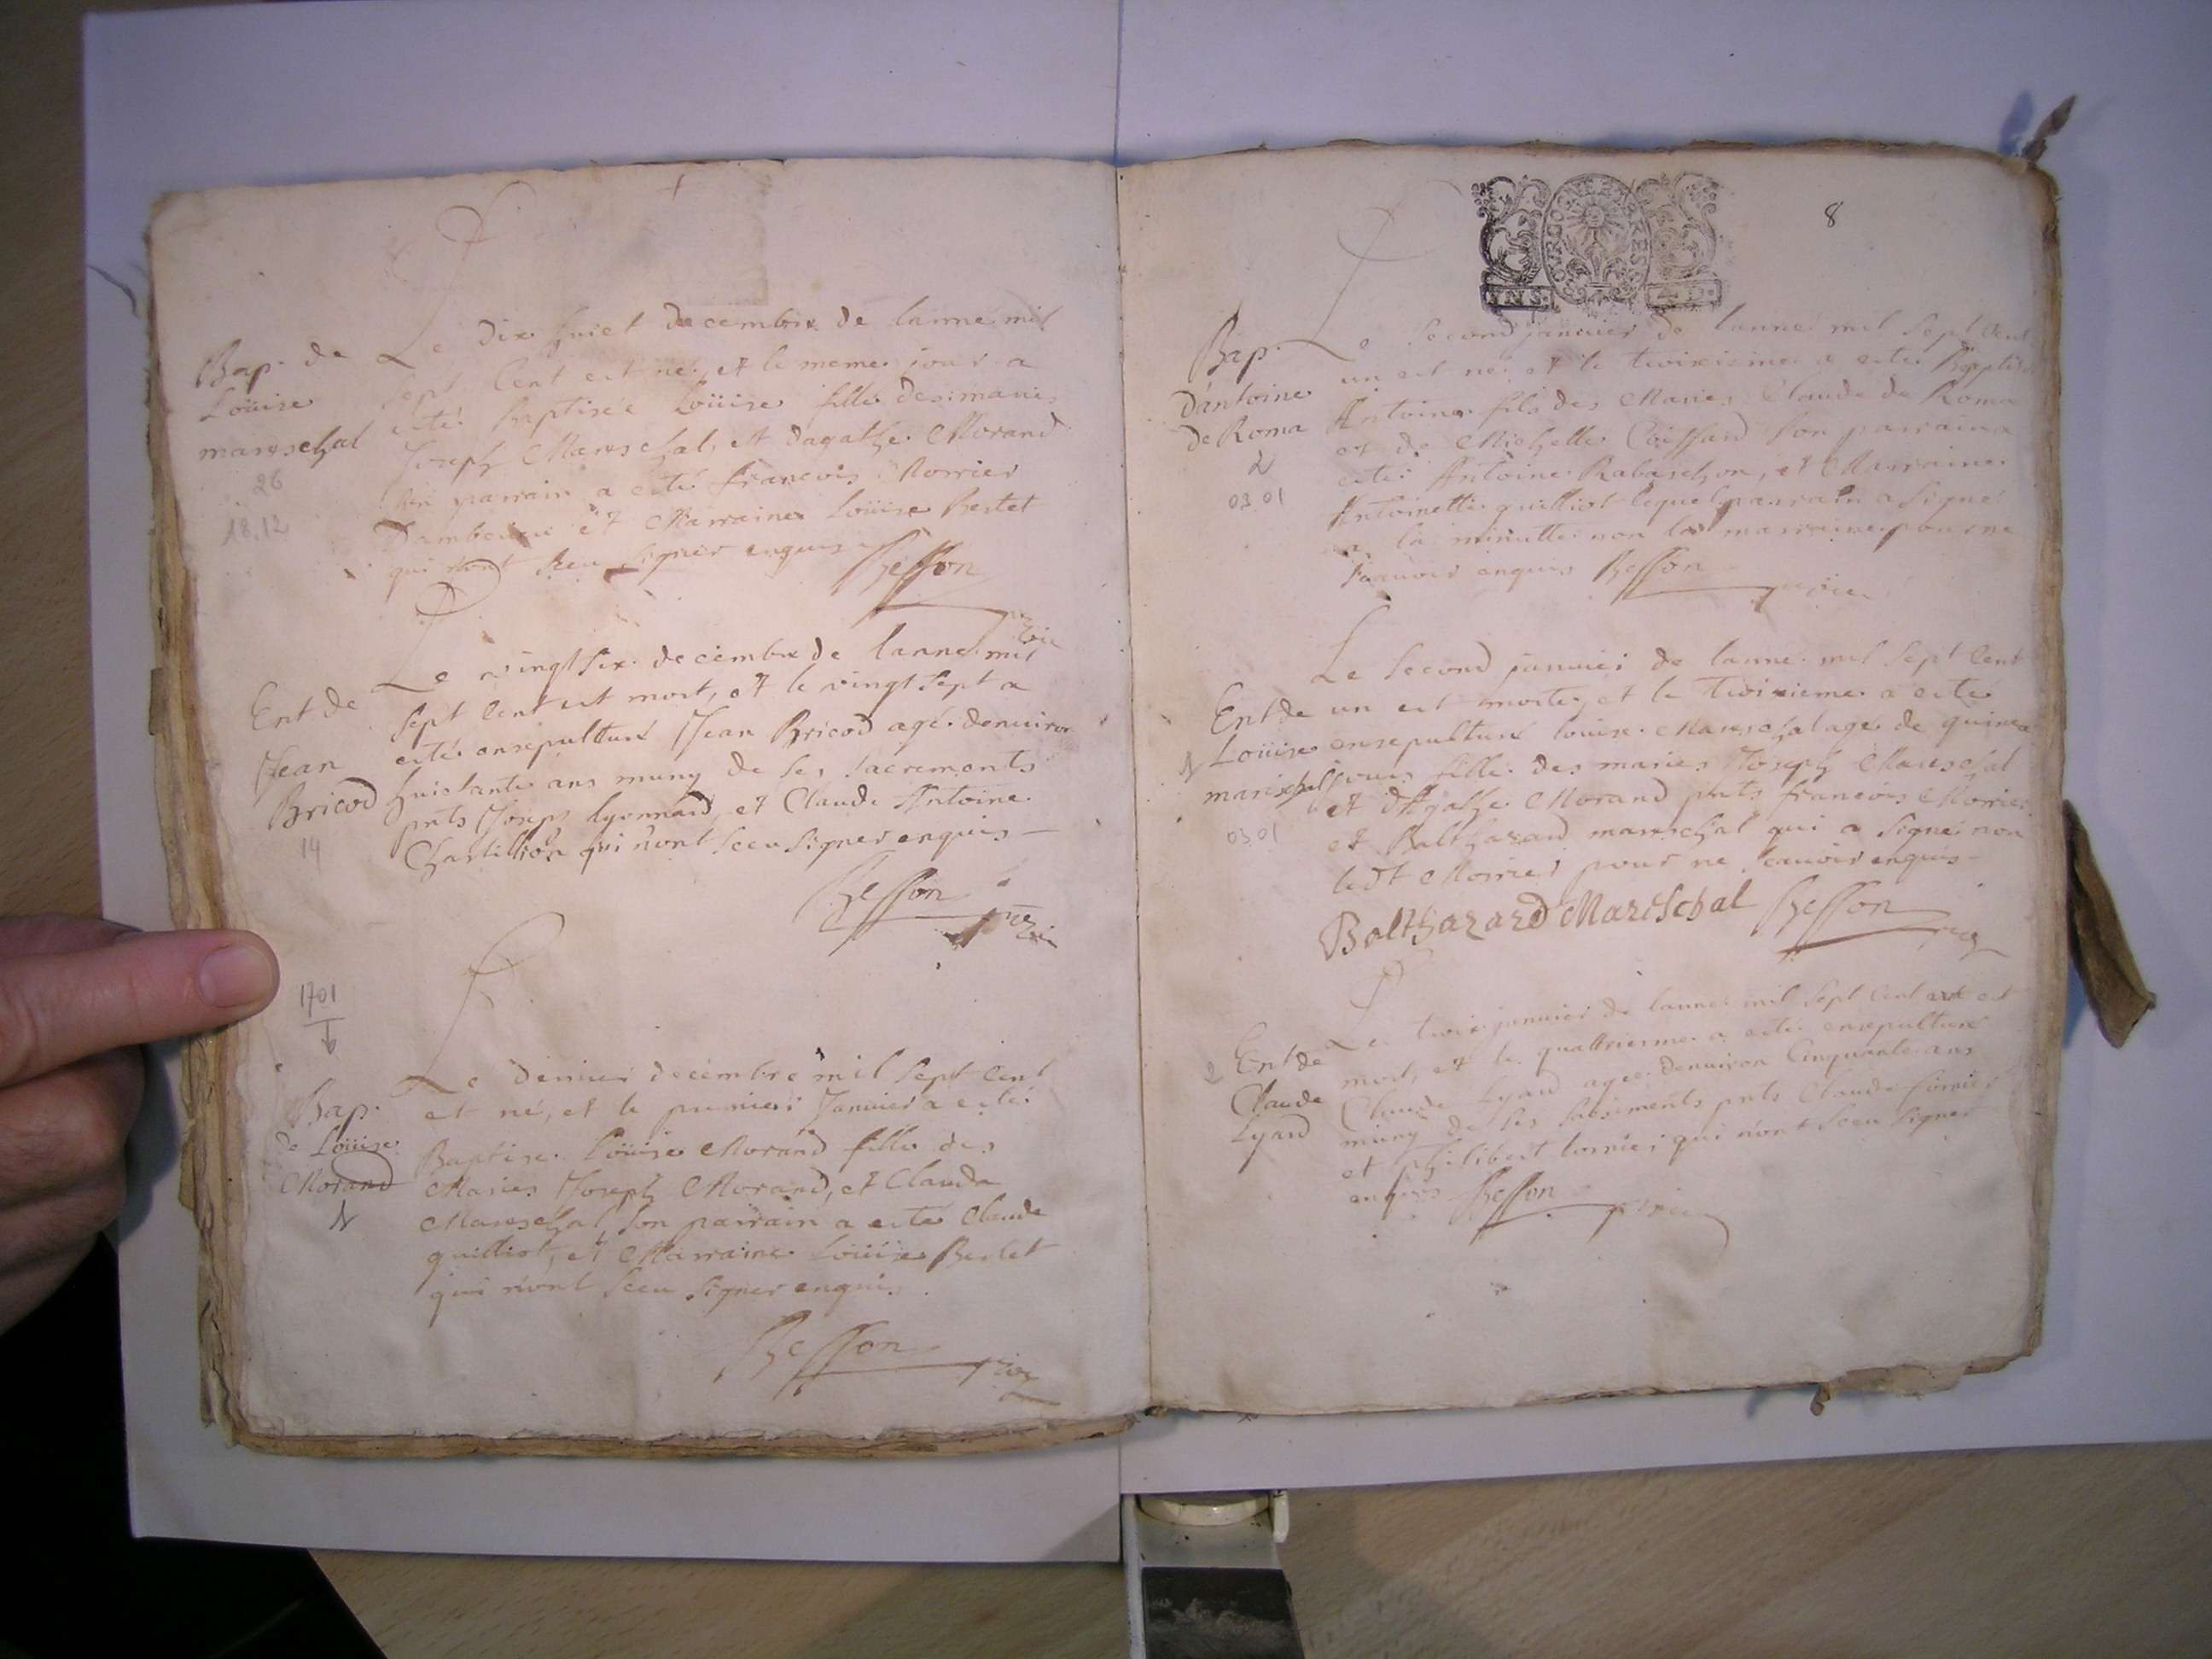 Bap. de
Loüise
mareschal
26
18.12
Le dix huict decembre de lanné mil
sept Cent est né, et le meme jour a
esté baptisée Loüise fille des mariés
Joseph Mareschal, et dagathe Morand
son parrain a esté francois Morrier
et Marraine Loüise Bertet
qui n'ont sceu signer enquis
Besson
Ent de
Jean
Bricod
14
Le vingt six decembre de lanne mil
sept Cent est mort, et le vingt sept a
esté ensepulturé Jean Bricod agé denuiron
huictante ans muny de ses sacrements
pnts Joseph lyonnard, et Claude Antoine
Chastillion qui n'ont sceu signer enquis
Besson
1701
Bap.
de Loüise
Morand
N
Le dernier decembre mil sept Cent
est né, et le premier Januier a esté
Baptise Loüise Morand fille des
Maries Joseph Morand, et Clauda
Mareschal, son parrain a esté Claude
quilliot, et Marraine Loüise Bertet
qui n'ont sceu signer enquis
Besson
8
BOURGOGNE
Bap.
D'antoine
de Roma
03 01
Le second januier de lanné mil sept Cent
un est né et le troixieme a esté Baptisé
Antoine fils des Maries Claude de Roma
et de Michelle Coiffard son parrain a
esté Antoine Rabaschon, et Marraine
Antoinette quilliot lequel parrain a signé
a la minutte non la marraine pour ne
scauoir enquis Besson
Ent de
Loüise
mareschal
03 01
Le second januier de lanne mil sept Cent
un est morte, et le troixieme a esté
ensepulturé louise Mareschal age de quinze
jours fille des maries Joseph Mareschal
et d'Agathe Morand pnts francois Morrier
et Balthazard mareschal qui a signé non
ledt Morrier pour ne scauoir enquis
Balthazard Mareschal Besson
2
Ent de
Claude
Lyard
Le troix januier de lanne mil sept Cent est
mort, et le quattriesme a esté ensepulturé
Claude Lyard agee denuiron Cinquante ans
muny de ses sacrements pnts Claude
et philibert qui n'ont sceu signer
enquis Besson